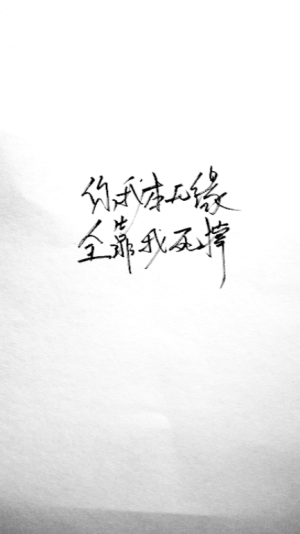 你我本无缘
全靠我死撑